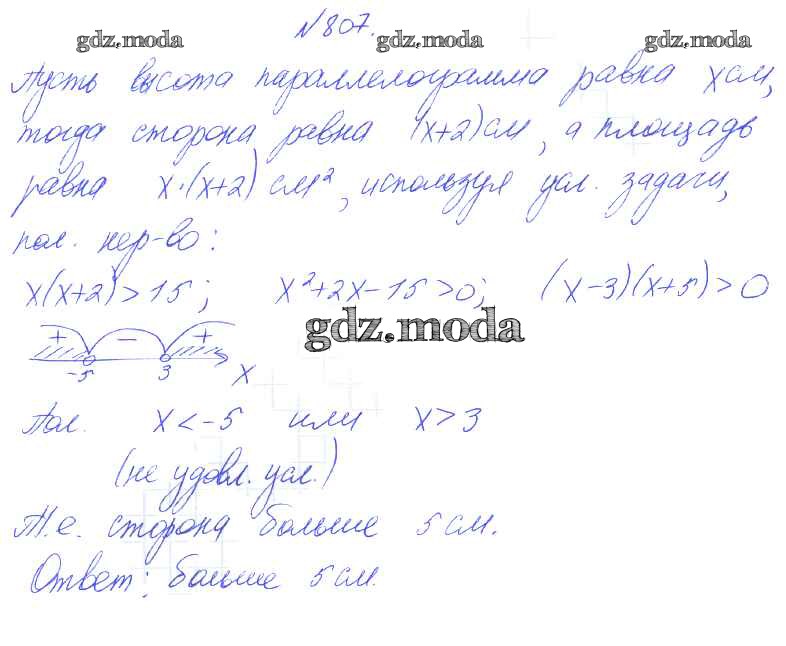 №807.
gdz.moda gdz.moda gdz.moda
Пусть высота параллелограмма равна x см,
тогда сторона равна (x+2) см, а площадь
равна x·(x+2) см², используя усл. задачи,
пол. нер-во:
x(x+2)>15; x²+2x-15>0; (x-3)(x+5)>0
gdz.moda
+ - +
-5 3 x
Пол. x<-5 или x>3
(не удовл. усл.)
Т.е. сторона больше 5 см.
Ответ: больше 5 см.